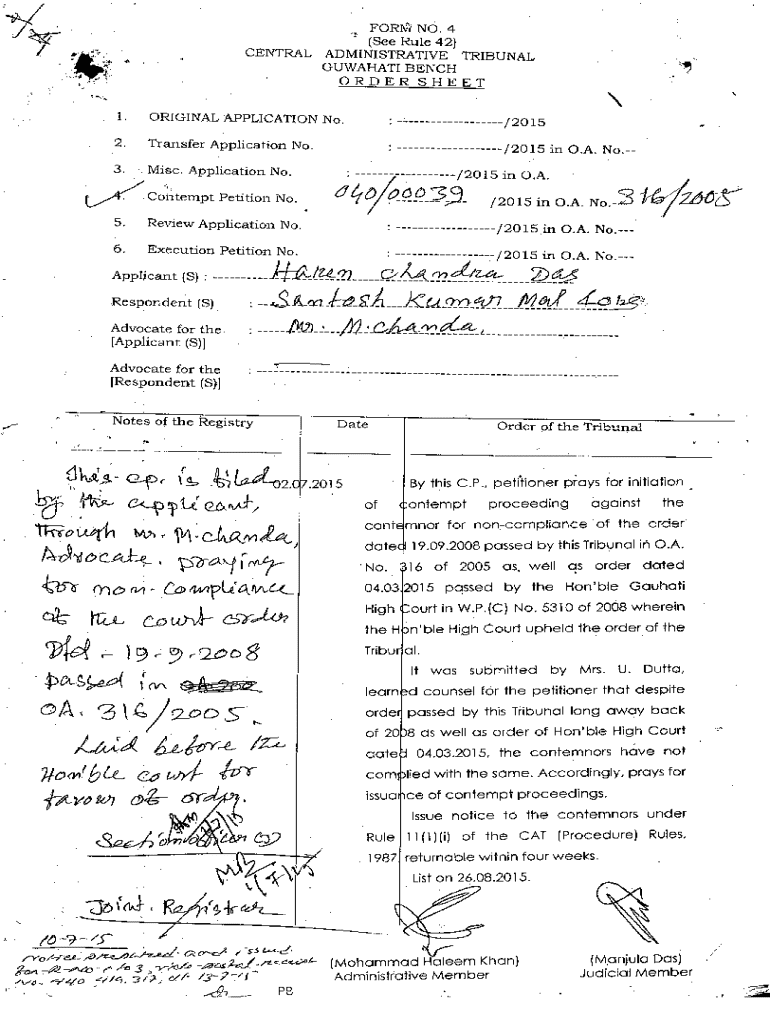 FORM NO. 4
(See Rule 42)
CENTRAL ADMINISTRATIVE TRIBUNAL
GUWAHATI BENCH
O R D E R S H E E T
1. ORIGINAL APPLICATION No. : -------------------/2015
2. Transfer Application No. : -------------------/2015 in O.A. No.--
3. Misc. Application No. : ------------------/2015 in O.A.
4. Contempt Petition No. 040/00039 /2015 in O.A. No.-316/2005
5. Review Application No. : ------------------/2015 in O.A. No.---
6. Execution Petition No. : ------------------/2015 in O.A. No.---
Applicant (S) : --------- Haren Chandra Das
Respondent (S) : -- Santosh Kumar Mal
Advocate for the : ----- Mr. M. Chanda,
[Applicant (S)]
Advocate for the : ------
[Respondent (S)]
Notes of the Registry
This c.p. is filed
by the applicant,
through Mr. M. Chanda,
Advocate, praying
for non-compliance
of the court order
Dtd - 19-9-2008
passed in
OA. 316/2005.
Laid before the
Hon'ble court for
favour of order.
Section Officer (J)
Joint Registrar
10-7-15
Notice prepared and issued
Date
02.07.2015
Order of the Tribunal
By this C.P., petitioner prays for initiation
of contempt proceeding against the
contemnor for non-compliance of the order
dated 19.09.2008 passed by this Tribunal in O.A.
No. 316 of 2005 as well as order dated
04.03.2015 passed by the Hon'ble Gauhati
High Court in W.P.(C) No. 5310 of 2008 wherein
the Hon'ble High Court upheld the order of the
Tribunal.
It was submitted by Mrs. U. Dutta,
learned counsel for the petitioner that despite
order passed by this Tribunal long away back
of 2008 as well as order of Hon'ble High Court
dated 04.03.2015, the contemnors have not
complied with the same. Accordingly, prays for
issuance of contempt proceedings.
Issue notice to the contemnors under
Rule 11(1)(i) of the CAT (Procedure) Rules,
1987 returnable within four weeks.
List on 26.08.2015.
(Mohammad Haleem Khan)
Administrative Member
(Manjula Das)
Judicial Member
PB